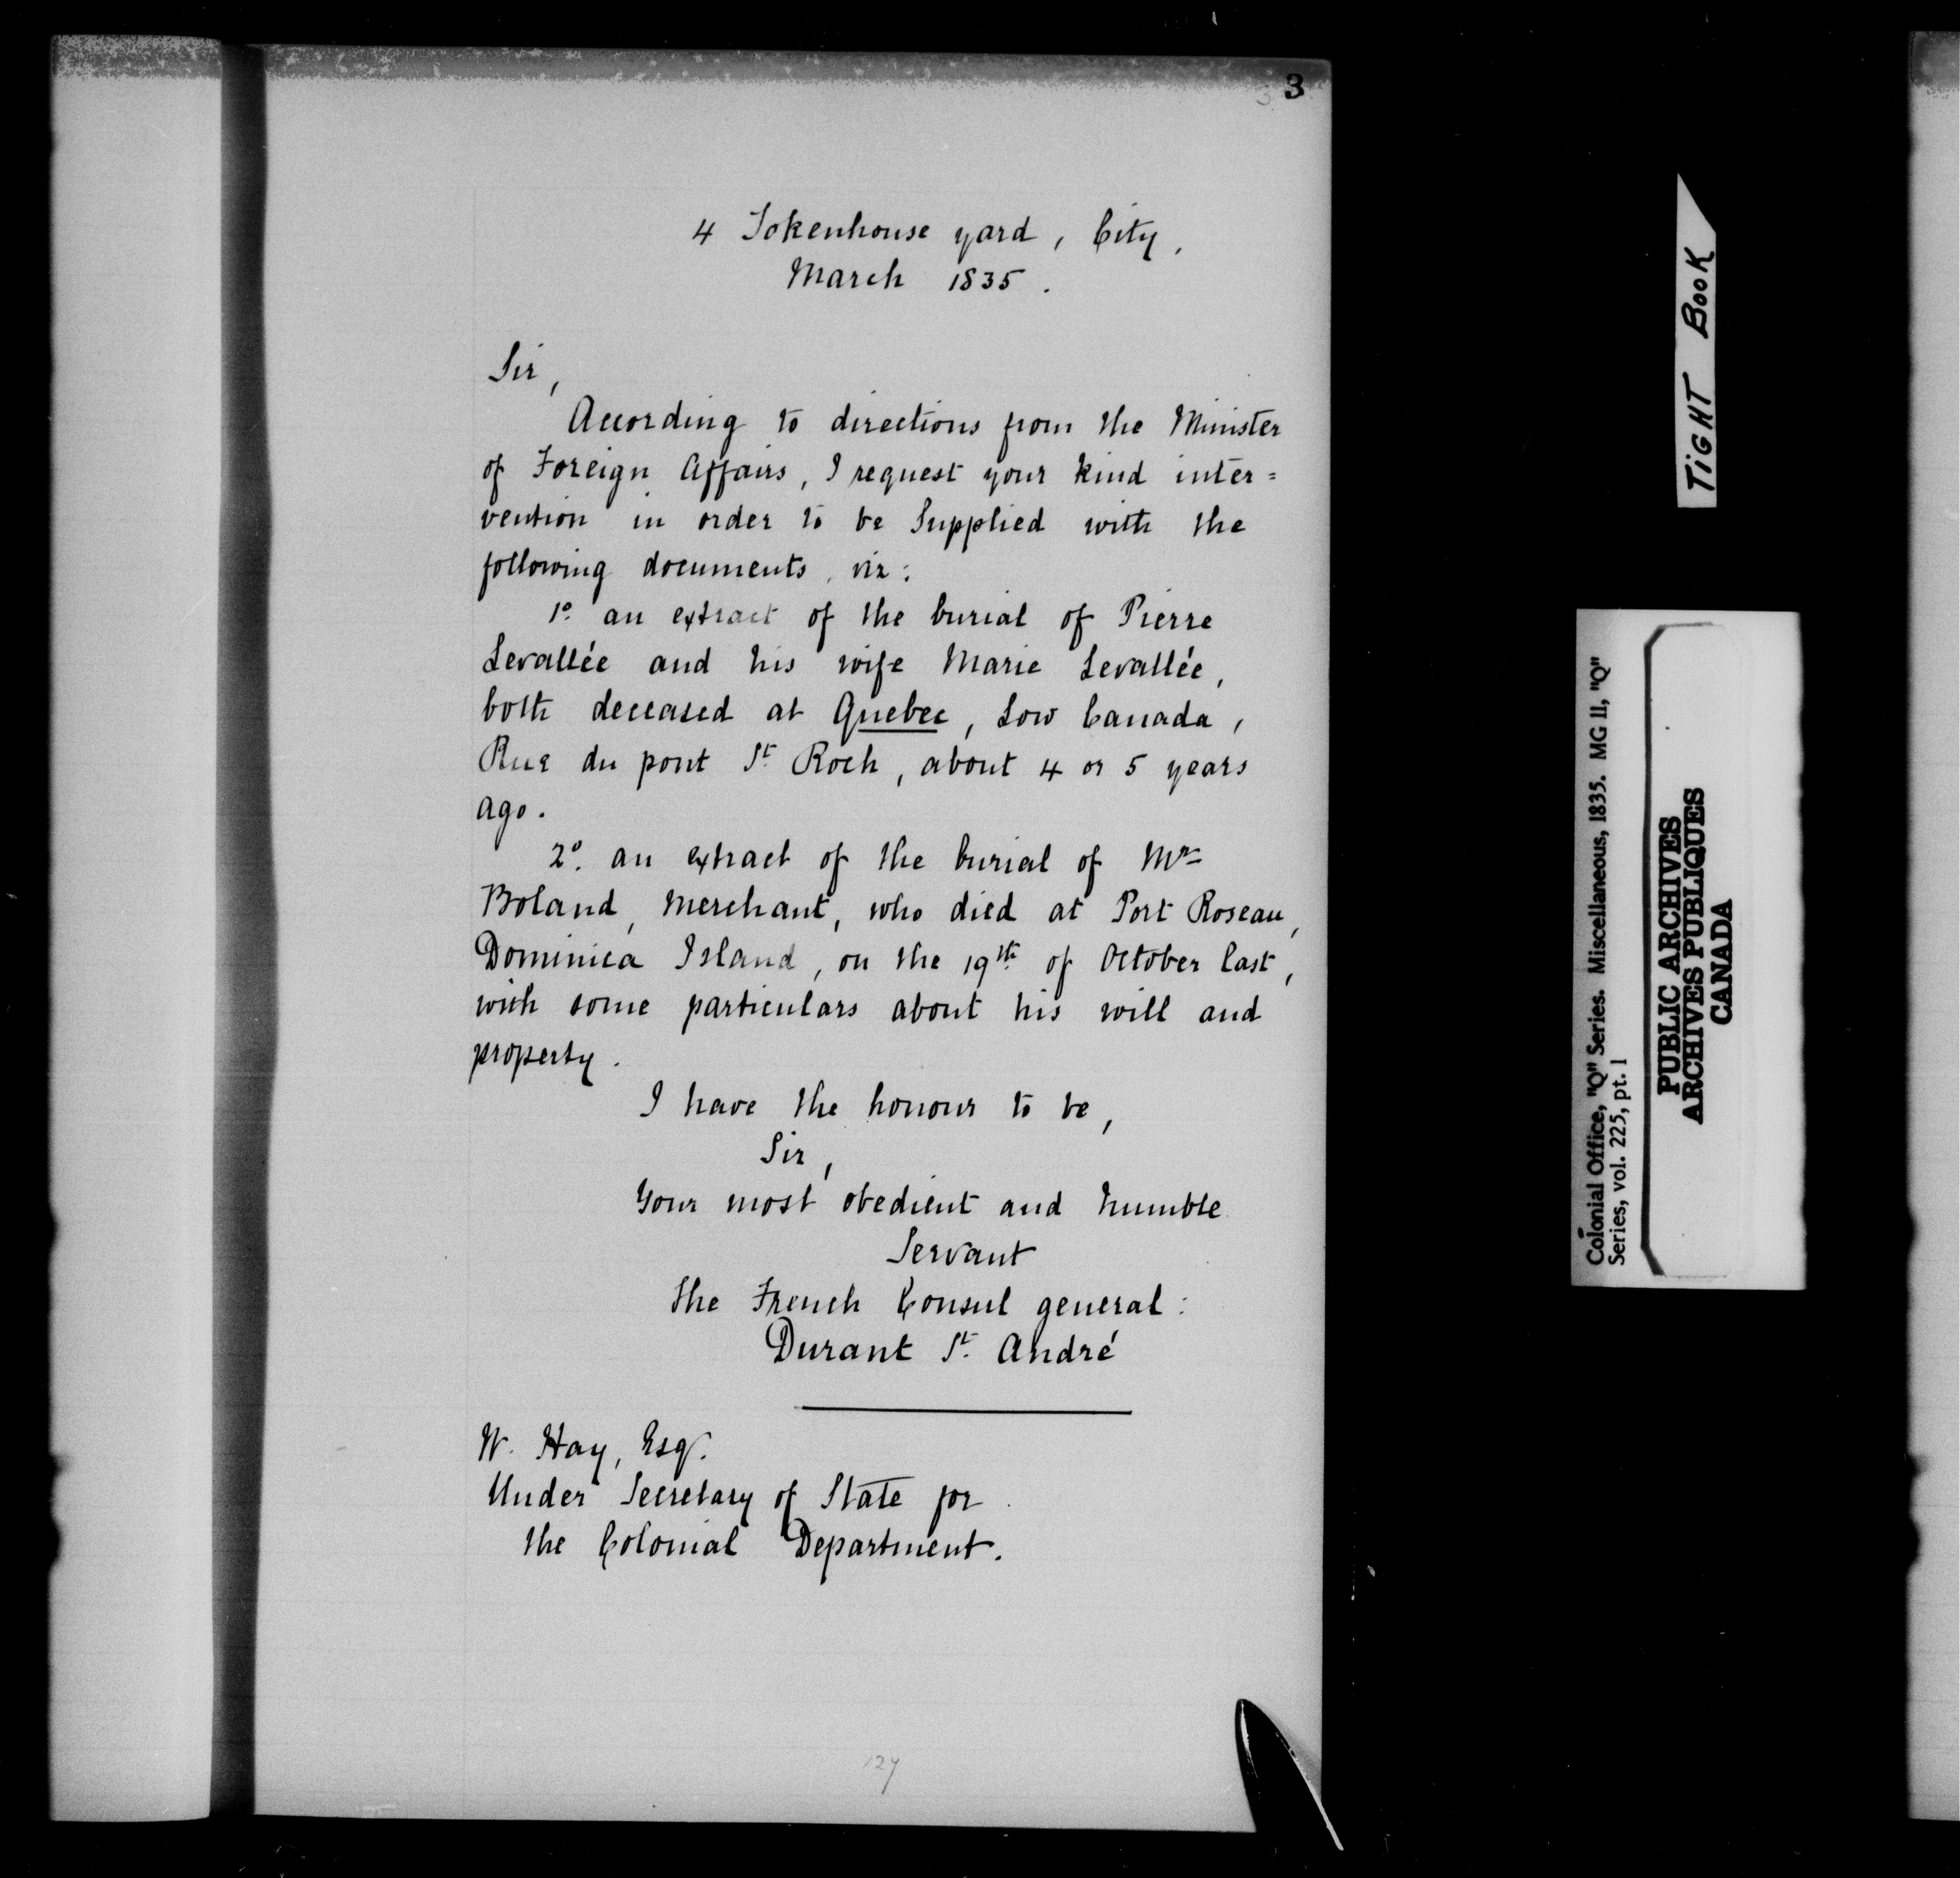 3
4 Tokenhouse yard, City,
March 1835.
Sir,
According to directions from the Minister
of Foreign Affairs, I request your kind inter=
vention in order to be Supplied with the
following documents, viz:
1º. an extract of the burial of Pierre
Levallée and his wife Marie Levallée,
both deceased at Quebec, Low Canada,
Rue du pont St Roch, about 4 or 5 years
ago.
2º. an extract of the burial of Mr
Boland, Merchant, who died at Port Roseau,
Dominica Island, on the 19th of October last,
with some particulars about his will and
property.
I have the honour to be,
Sir,
Your most obedient and humble
Servant
the French Consul general:
Durant St. André
W. Hay, Esqr.
Under Secretary of State for
the Colonial Department.
127
TIGHT BOOK
Colonial Office, "Q" Series. Miscellaneous, 1835. MG 11, "Q"
Series, vol. 225, pt. 1
PUBLIC ARCHIVES
ARCHIVES PUBLIQUES
CANADA